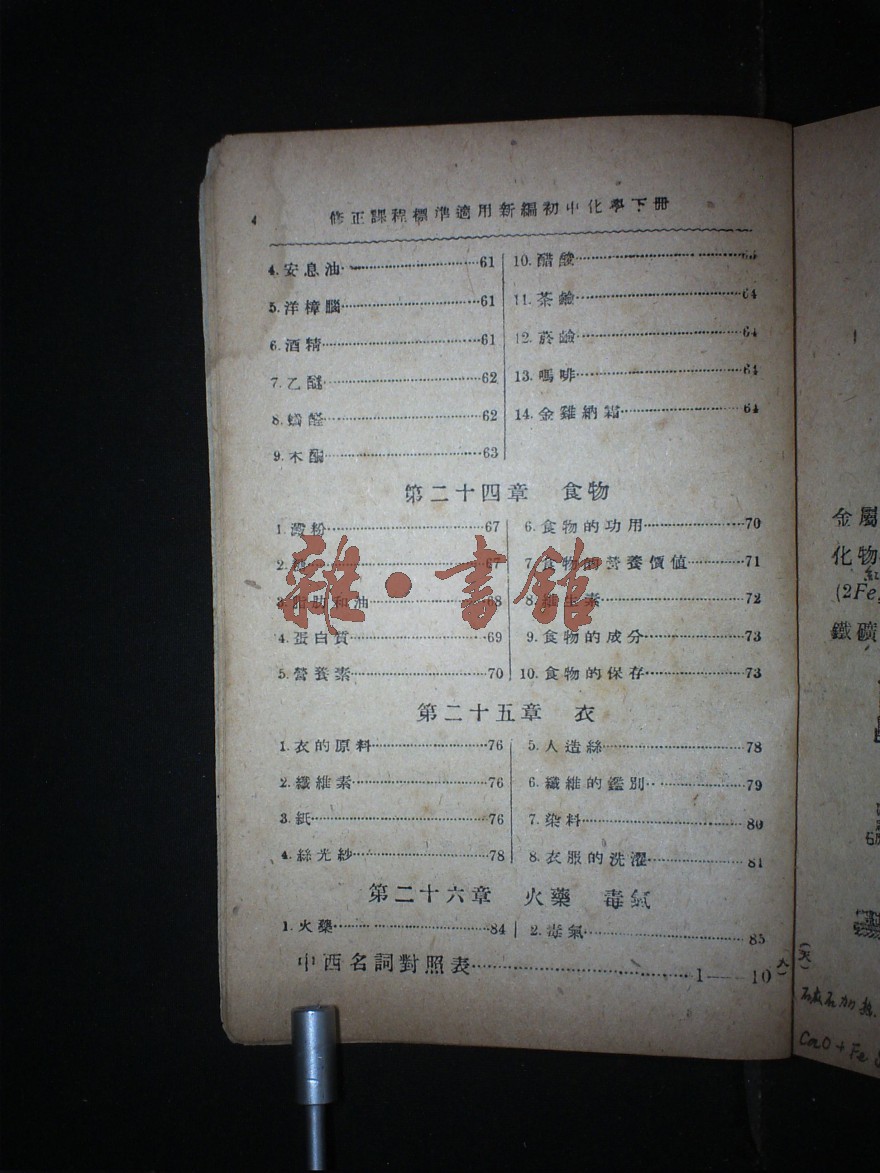 4 修正課程標準適用新編初中化學下冊
4. 安息油…………61
5. 洋樟腦…………61
6. 酒精…………61
7. 乙醚…………62
8. 蟻醛…………62
9. 木酮…………63
10. 醋酸…………
11. 茶鹼…………64
12. 菸鹼…………64
13. 嗎啡…………64
14. 金雞納霜…………64
第二十四章 食物
1. 澱粉…………67
2. …………67
3. 脂肪和油…………68
4. 蛋白質…………69
5. 營養素…………70
6. 食物的功用…………70
7. 食物的營養價値…………71
8. 維生素…………72
9. 食物的成分…………73
10. 食物的保存…………73
第二十五章 衣
1. 衣的原料…………76
2. 纖維素…………76
3. 紙…………76
4. 絲光紗…………78
5. 人造絲…………78
6. 纖維的鑑別…………79
7. 染料…………80
8. 衣服的洗濯…………81
第二十六章 火藥 毒氣
1. 火藥…………84
2. 毒氣…………85
中西名詞對照表…………1——10
雜·書館
金屬
化物
(2Fe
鐵礦
CaO + Fe